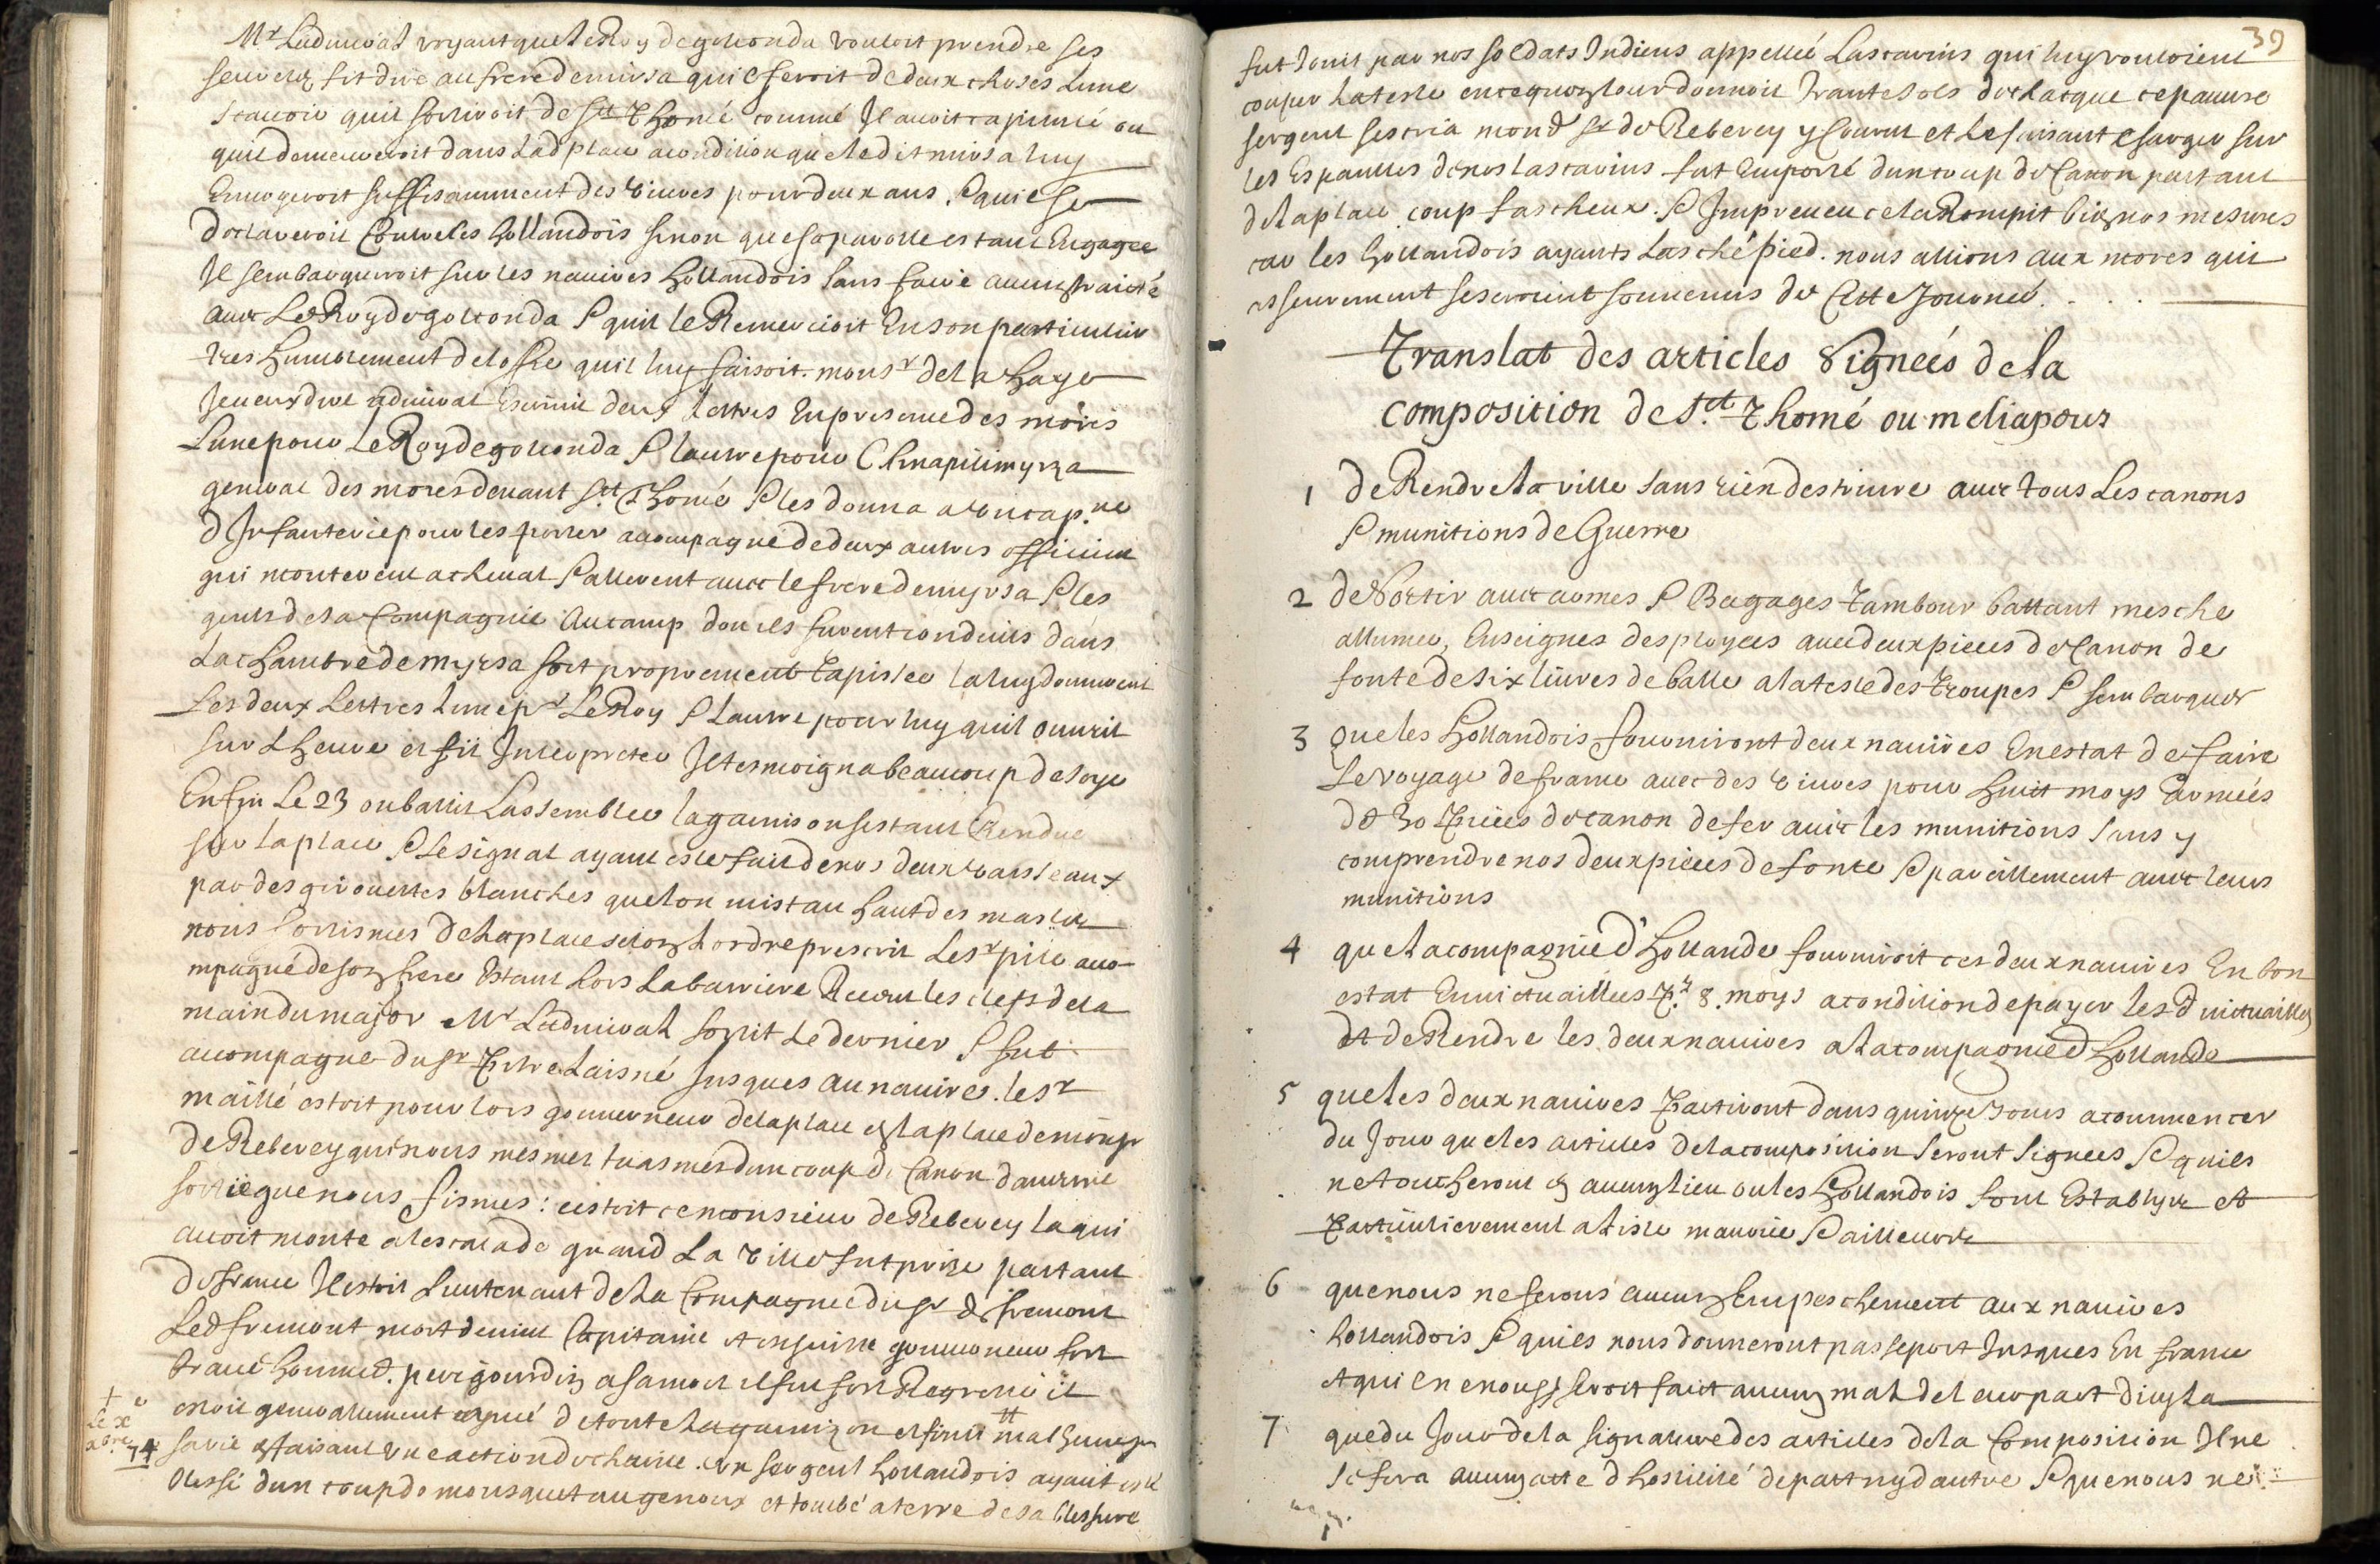 Mr Ladmiral voyant que le Roy de golconda vouloit prendre ses
seuretez fit dire au frere demirsa quil feroit de deux choses Lune
scauoir quil sortiroit de Sct Thomé comme Il auoit capitulé ou
quil demeureroit dans Lad place a condition que ledit mirsa luy
Enuoyeroit suffisamment des viures pour deux ans. & quil se
declareroit Contre les hollandois sinon que sa parolle estant Engagée
Il sembarqueroit sur les nauires hollandois sans faire aucun traicté
auec Le Roy de golconda & quil le Remercioit En son particulier
tres humblement de loffre quil luy faisoit. monsr de la haye
 admiral Escriuit deux lettres En presence des mores
Lune pour Le Roy de golconda & lautre pour Chinapilimyrza
general des mores deuant Sct Thomé & les donna a un capne
dInfanterie pour les porter accompagné de deux autres officiers
qui monterent a cheual & allerent auec le frere de myrsa & les
gents de la Compagnie Au camp dou ils furent conduits dans
La chambre de myrsa fort proprement tapissée la luy donnerent
Les deux Lettres lune pr Le Roy & lautre pour luy quil ouurit
sur Lheure et fit Interpreter Il tesmoigna beaucoup de Joye
Enfin Le 23 on battit Lassemblée la garnison sestant Rendue
sur la place & le signal ayant esté fait de nos deux vaisseaux
par des girouettes blanches que lon mist au haut des mastz
nous sortismes de la place selon lordre prescrit Le sr pile acco-
mpagné de son frere Estant hors La barriere Receut les clefs de la
main du major Mr Ladmiral sortit Le dernier & fut
accompagné du sr Laisné Jusques au nauire. le sr
maillé estoit pour lors gouuerneur de la place en la place de monsr
de Reberey qui nous mesmes tuasmes dun coup de Canon dans une
sortie que nous fismes: cestoit ce monsieur de Reberey la qui
auoit monté a lescalade quand La Ville fut prise partant
de france Il estoit Lieutenant de La Compagnie du sr de fremont
Led fremont mort deuint Capitaine et ensuitte gouuerneur fort
braue homme. perigourdin a sa mort il fut fort Regretté il
estoit generalement aymé de toute la garnizon et finit malheureusemtt
sa vie en faisant vne action de charité. vn sergent hollandois ayant esté
blessé dun coup de mousquet au genoux et tombé a terre de sa blessure
+
Le xe
abre
74
39
fut Joint par nos soldats Indiens appellé Lascarins qui luy vouloient
couper La teste en ce quon leur donnoit trante sols de chacque ce pauure
sergent sescria mond sr de Reberey y Courut et Le faisant charger sur
les Espaulles de nos lascarins fut Emporté dun coup de Canon partant
de la place coup fascheux. & Impreueu cela Rompit bien nos mesures
car les hollandois ayants Lasché pied. nous allions aux mores qui
asseurement se seroient souuenus de Cette Journée. . . .
Translat des articles Signeés de la
composition de Sct. Thomé ou meliapour
1 de Rendre la ville sans rien destruire auec tous Les canons
& munitions de Guerre
2 de Sortir auec armes & Bagages tambour battant mesche
allumeé, Enseignes desployeés auec deux pieces de Canon de
fonte de six liures de balle a la teste des troupes & sembarquer
3 que les hollandois fourniront deux nauires En estat de faire
Le voyage de france auec des viures pour huict moys armées
de 30 Pieces de canon de fer auec les munitions sans y
comprendre nos deux pieces de fonte & pareillement auec leurs
munitions
4 que la compagnie d'hollande fourniroit ces deux nauires En bon
estat Enuictuaillées Pr. 8. moys a condition de payer lesd uictuailles
et de Rendre les deux nauires a la compagnie d'hollande
5 que les deux nauires Partiront dans quinze Jours a commencer
du Jour que les articles de la composition seront signees & quils
ne toucheront en aucun lieu ou les hollandois sont Establys et
Particulierement a Lisle maurice & ailleurs
6 que nous ne ferons aucun Empeschement aux nauires
hollandois & quils nous donneront passeport Jusques En france
et quil ne nous seroit fait aucun mal de leur part dicy la
7 que du Jour de la signature des articles de la Composition Il ne
se fera aucun acte d hostilité de part ny dautre & que nous ne